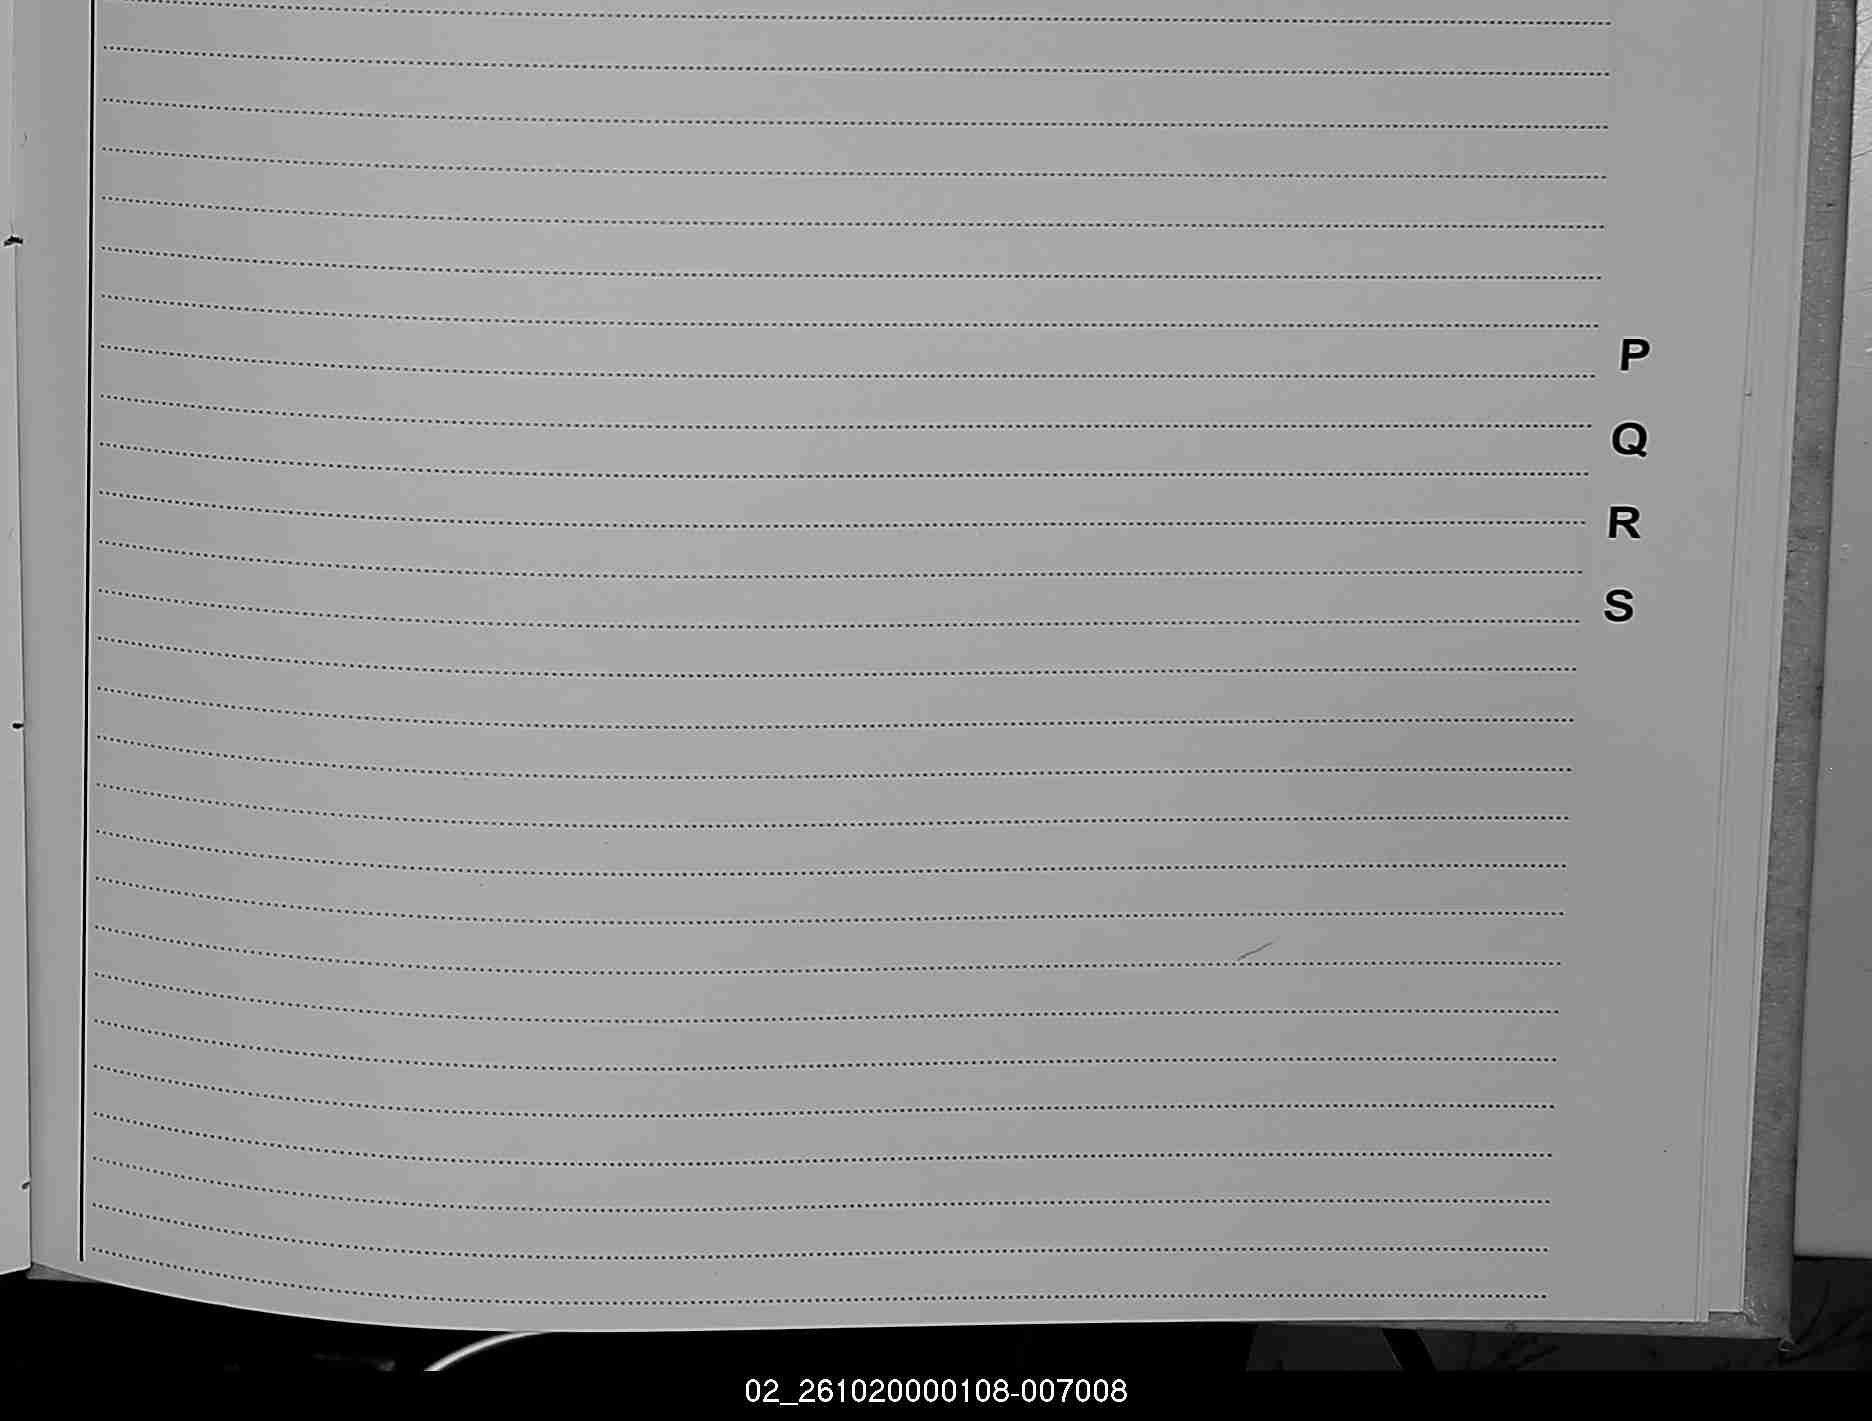 P
Q
R
S
02_261020000108-007008